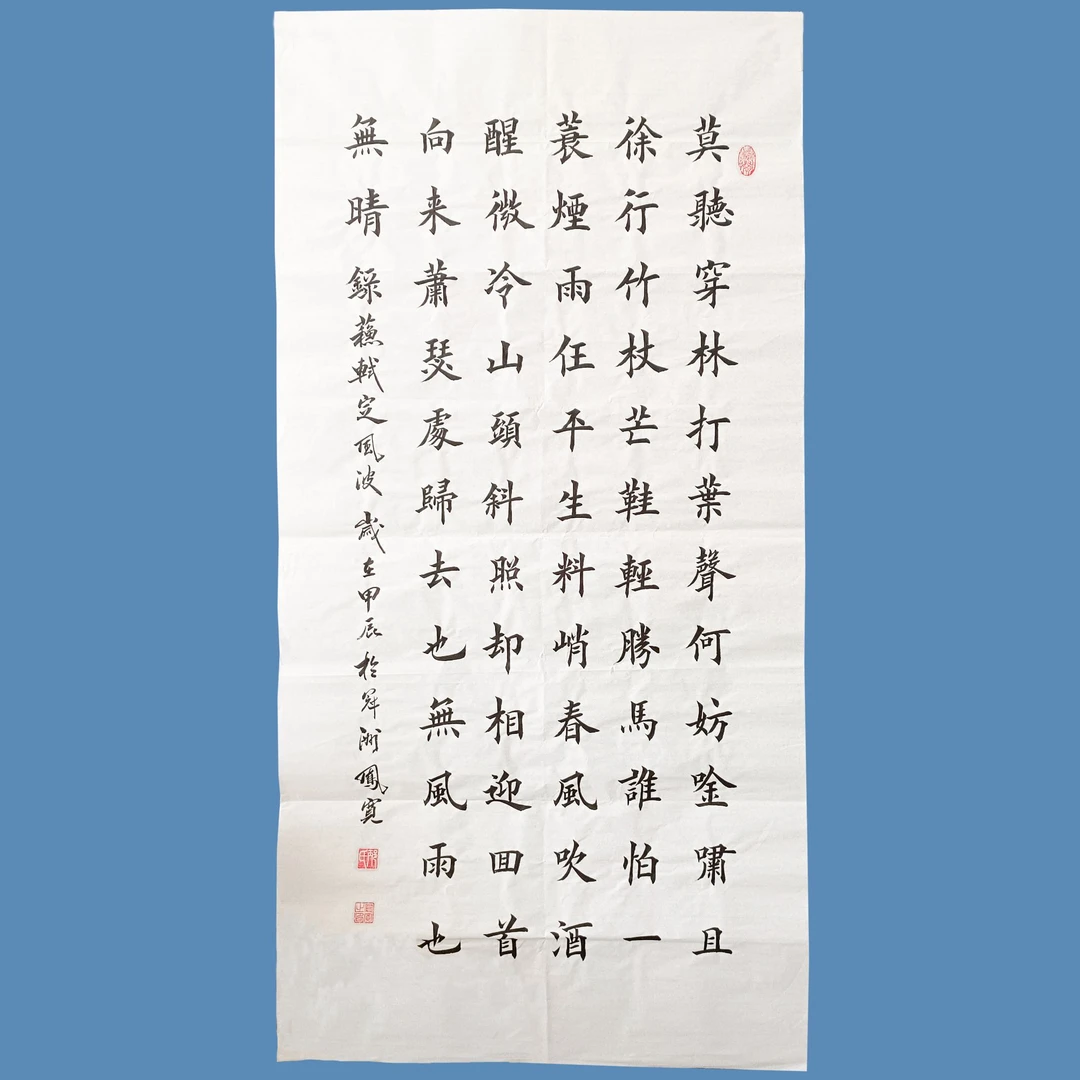 莫聽穿林打葉聲何妨唫嘯且
徐行竹杖芒鞋輕勝馬誰怕一
蓑煙雨任平生料峭春風吹酒
醒微冷山頭斜照却相迎回首
向来蕭瑟處歸去也無風雨也
無晴 錄蘇軾定風波 歲在甲辰於 洲鳳寛